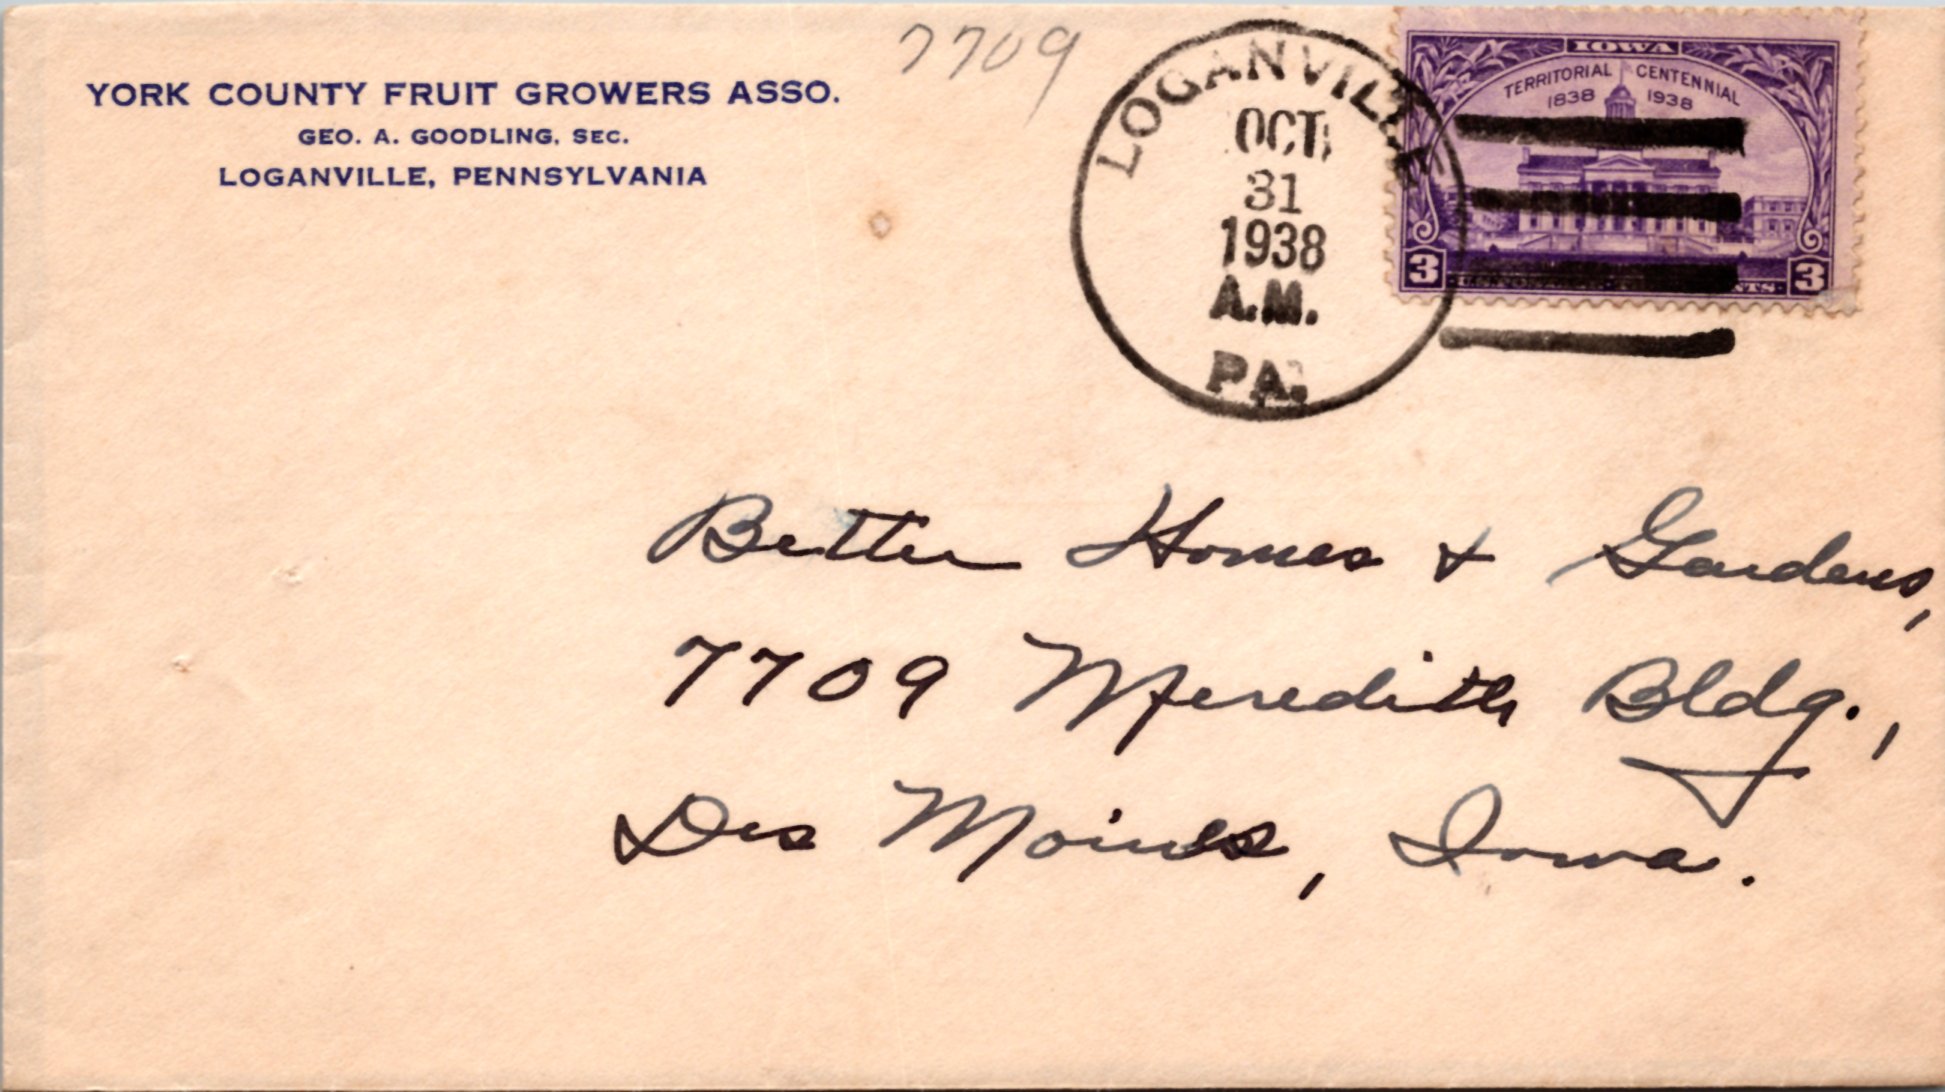 YORK COUNTY FRUIT GROWERS ASSO.
GEO. A. GOODLING, SEC.
LOGANVILLE, PENNSYLVANIA
7709
LOGANVILLE
OCT
31
1938
A.M.
PA.
IOWA
TERRITORIAL CENTENNIAL
1838 1938
3 3
Better Homes & Gardens,
7709 Meredith Bldg.,
Des Moines, Iowa.